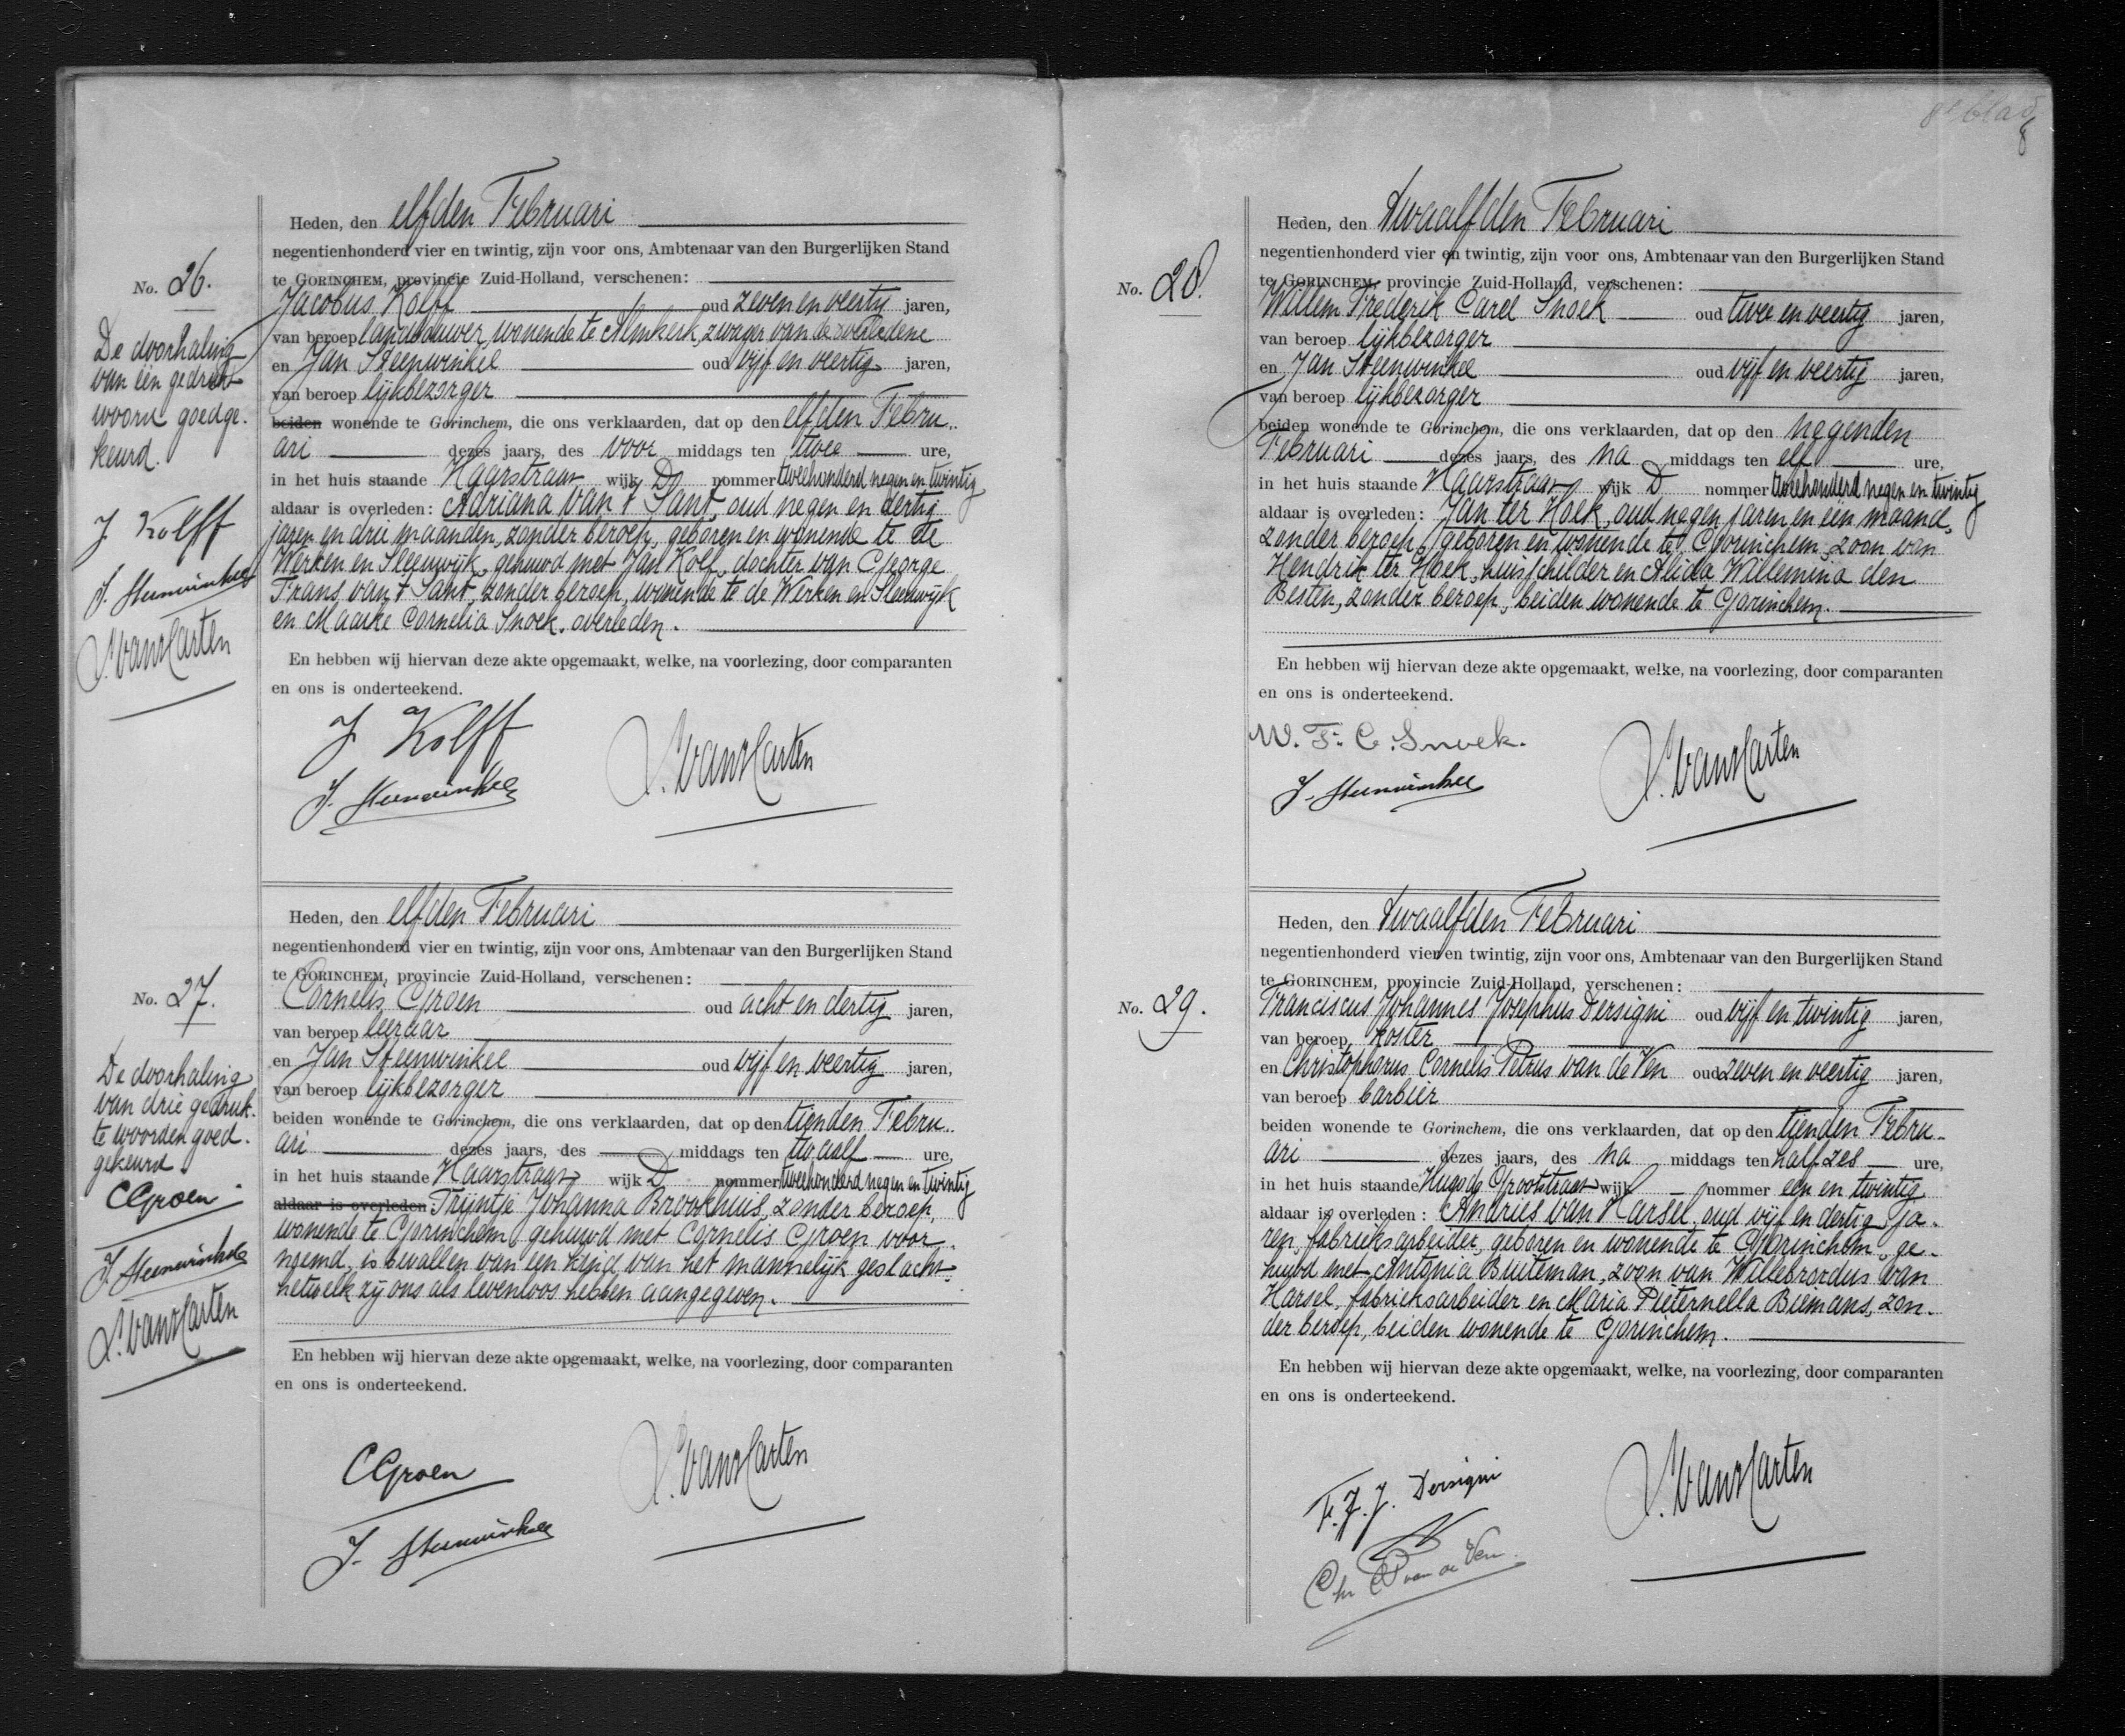 No. 26.
De doorhaling
van één gedrukt
woord goedge-
keurd.
J. Kolff
J. Steenwinkel
Heden, den elfden Februari
negentienhonderd vier en twintig, zijn voor ons, Ambtenaar van den Burgerlijken Stand
te GORINCHEM, provincie Zuid-Holland, verschenen:
Jacobus Kolff oud zeven en veertig jaren,
van beroep landbouwer, wonende te Almkerk, zwager van de overledene
en Jan Steenwinkel oud vijf en veertig jaren,
van beroep lijkbezorger
beiden wonende te Gorinchem, die ons verklaarden, dat op den elfden Febru-
ari dezes jaars, des voor middags ten twee ure,
in het huis staande Haarstraat wijk D nommer tweehonderd negen en twintig
aldaar is overleden: Adriana van 't Sant, oud negen en dertig
jaren en drie maanden, zonder beroep, geboren en wonende te de
Werken en Sleeuwijk, gehuwd met Jan Kolf, dochter van George
Frans van 't Sant, zonder beroep, wonende te de Werken en Sleeuwijk
en Maaike Cornelia Snoek, overleden.
En hebben wij hiervan deze akte opgemaakt, welke, na voorlezing, door comparanten
en ons is onderteekend.
J. Kolff
J. Steenwinkel
No. 27.
De doorhaling
van drie gedruk-
te woorden goed-
gekeurd.
CGroen
J. Steenwinkel
Heden, den elfden Februari
negentienhonderd vier en twintig, zijn voor ons, Ambtenaar van den Burgerlijken Stand
te GORINCHEM, provincie Zuid-Holland, verschenen:
Cornelis Groen oud acht en dertig jaren,
van beroep leeraar
en Jan Steenwinkel oud vijf en veertig jaren,
van beroep lijkbezorger
beiden wonende te Gorinchem, die ons verklaarden, dat op den tienden Febru-
ari dezes jaars, des middags ten twaalf ure,
in het huis staande Haarstraat wijk D nommer tweehonderd negen en twintig
aldaar is overleden Trijntje Johanna Brookhuis, zonder beroep,
wonende te Gorinchem, gehuwd met Cornelis Groen voor-
noemd, is bevallen van een kind van het mannelijk geslacht
hetwelk zij ons als levenloos hebben aangegeven.
En hebben wij hiervan deze akte opgemaakt, welke, na voorlezing, door comparanten
en ons is onderteekend.
CGroen
J. Steenwinkel
8e blad
8
No. 28.
Heden, den twaalfden Februari
negentienhonderd vier en twintig, zijn voor ons, Ambtenaar van den Burgerlijken Stand
te GORINCHEM, provincie Zuid-Holland, verschenen:
Willem Frederik Carel Snoek oud twee en veertig jaren,
van beroep lijkbezorger
en Jan Steenwinkel oud vijf en veertig jaren,
van beroep lijkbezorger
beiden wonende te Gorinchem, die ons verklaarden, dat op den negenden
Februari dezes jaars, des na middags ten elf ure,
in het huis staande Haarstraat wijk D nommer tweehonderd negen en twintig
aldaar is overleden: Jan ter Hoek, oud negen jaren en één maand,
zonder beroep, geboren en wonende te Gorinchem, zoon van
Hendrik ter Hoek, huisschilder en Alida Willemina den
Besten, zonder beroep, beiden wonende te Gorinchem.
En hebben wij hiervan deze akte opgemaakt, welke, na voorlezing, door comparanten
en ons is onderteekend.
W. F. C. Snoek.
J. Steenwinkel
No. 29.
Heden, den twaalfden Februari
negentienhonderd vier en twintig, zijn voor ons, Ambtenaar van den Burgerlijken Stand
te GORINCHEM, provincie Zuid-Holland, verschenen:
Franciscus Johannes Josephus Dersigni oud vijf en twintig jaren,
van beroep koster
en Christophorus Cornelis Petrus van de Ven oud zeven en veertig jaren,
van beroep barbier
beiden wonende te Gorinchem, die ons verklaarden, dat op den tienden Febru-
ari dezes jaars, des na middags ten half zes ure,
in het huis staande Hugo de Grootstraat wijk nommer een en twintig
aldaar is overleden: Andries van Harsel, oud vijf en dertig ja-
ren, fabrieksarbeider, geboren en wonende te Gorinchem, ge-
huwd met Antonia Buiteman, zoon van Willebrordus van
Harsel, fabrieksarbeider en Maria Pieternella Biemans, zon-
der beroep, beiden wonende te Gorinchem.
En hebben wij hiervan deze akte opgemaakt, welke, na voorlezing, door comparanten
en ons is onderteekend.
F. J. J. Dersigni
Chr CP van de Ven.